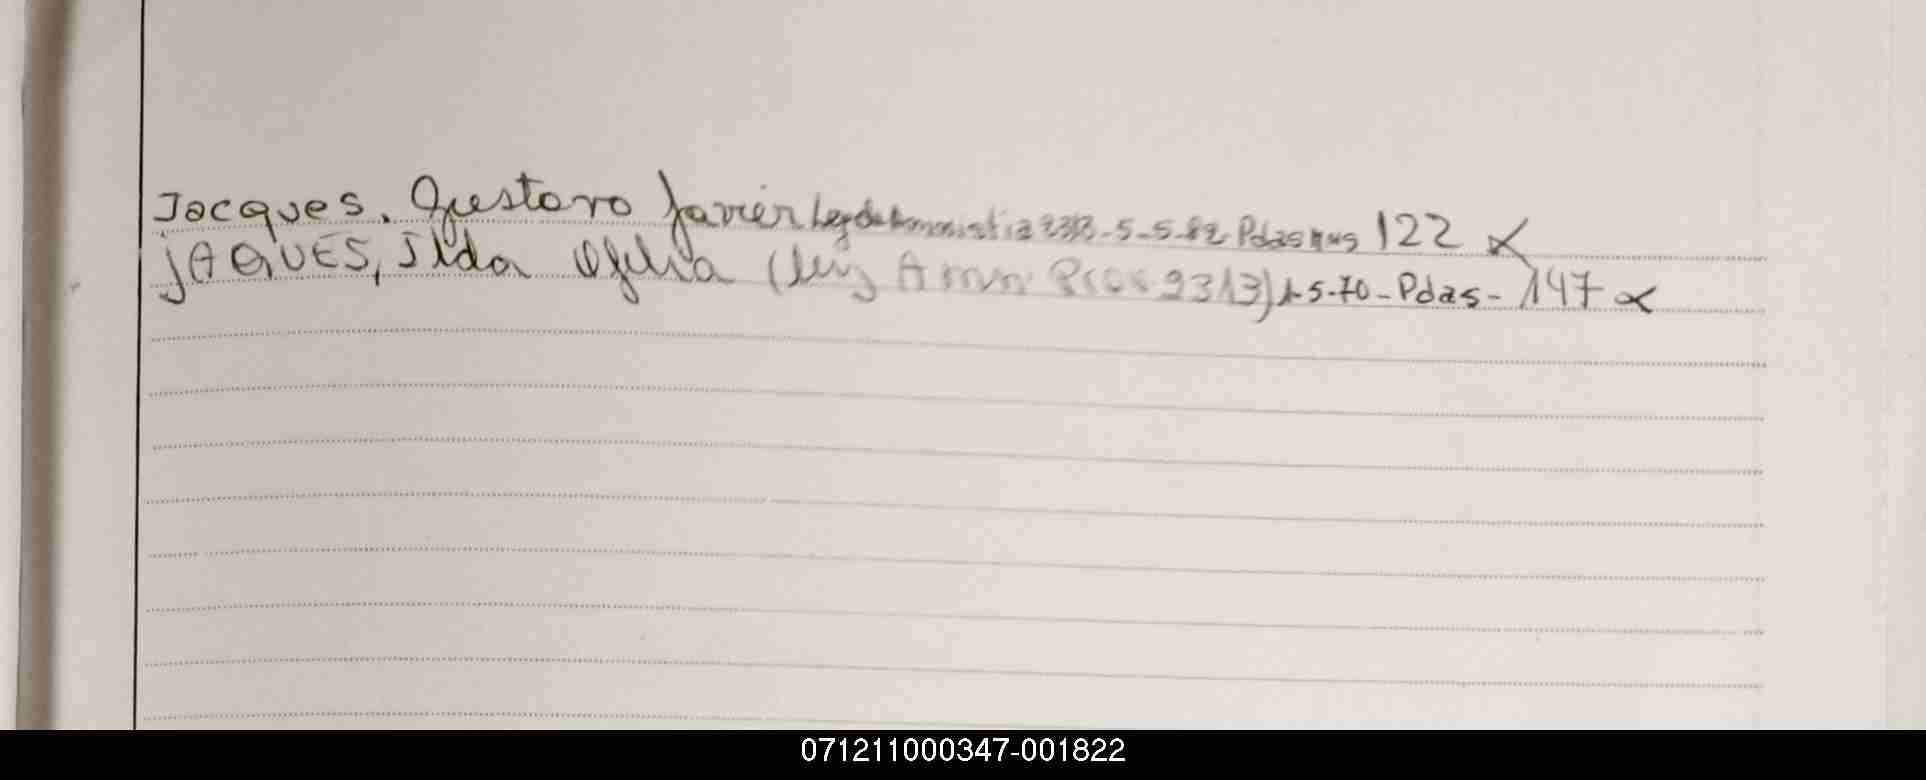 Jacques, Gustavo Javier Ley de Amnistia 2313-5-5-82 Pdas nus 122
JAQUES, Ilda Ofelia (Ley Amn 9313) 1-5-70-Pdas-147
071211000347-001822